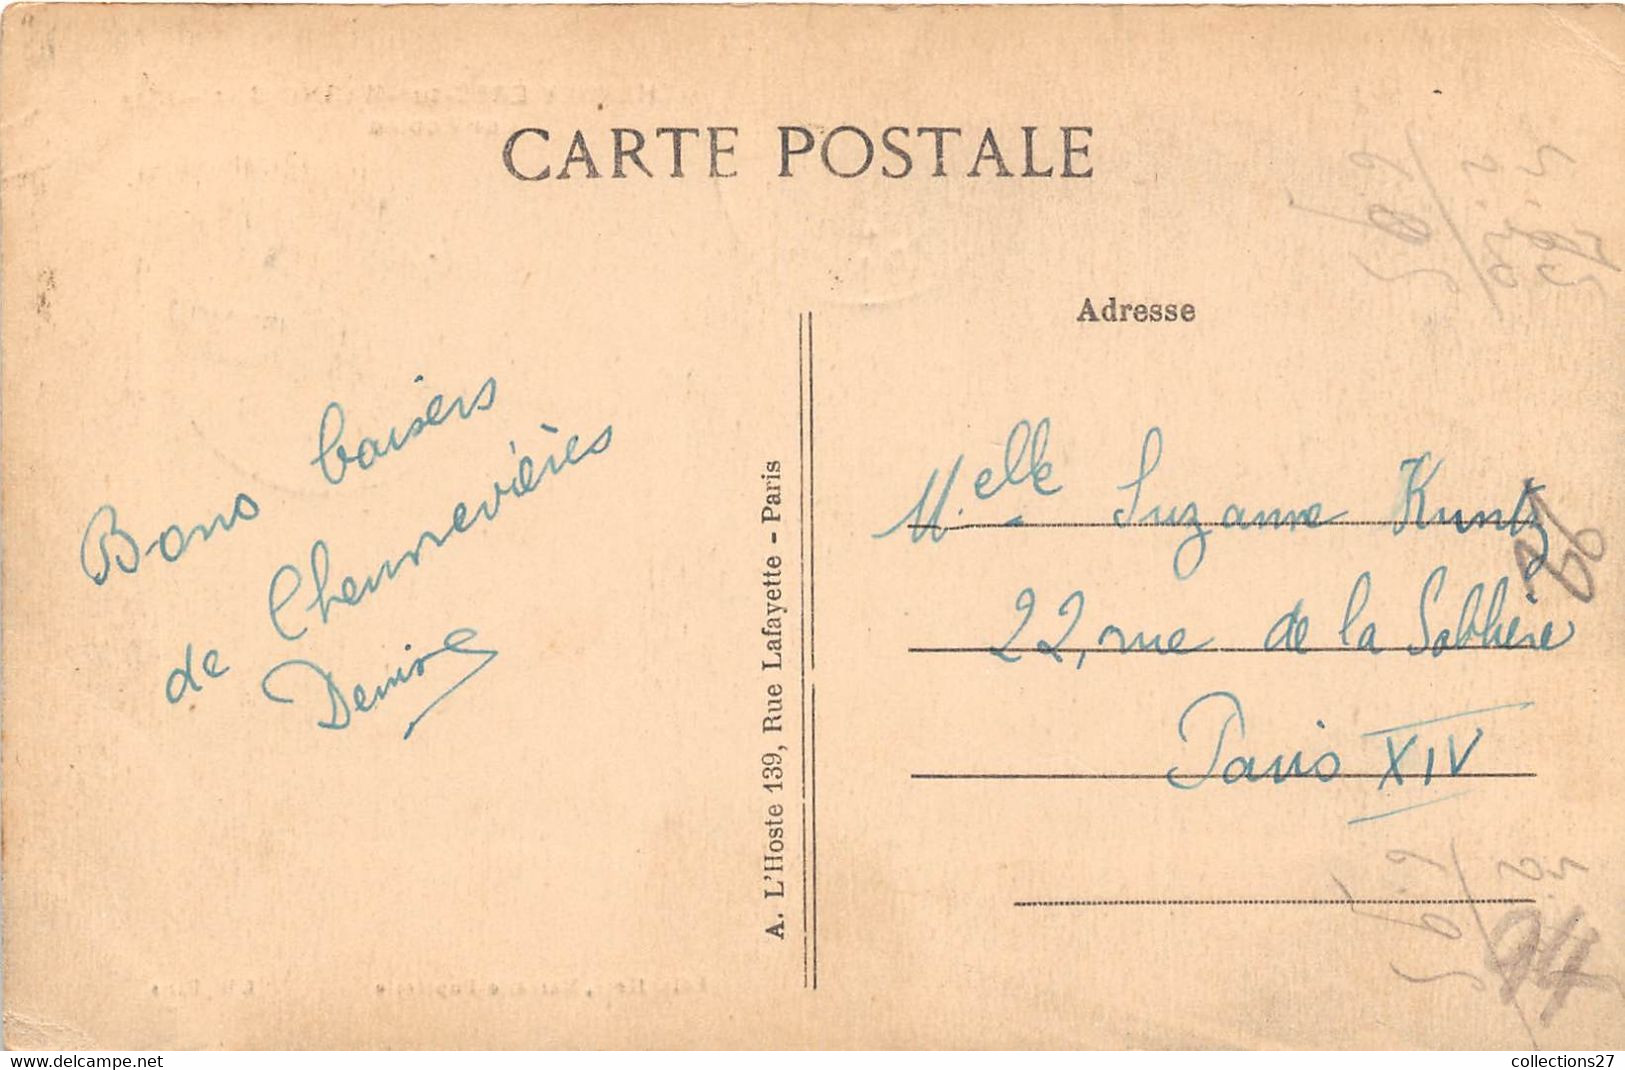 CARTE POSTALE
Bons baisers
de Chennevières
Denise
A. L'Hoste 139, Rue Lafayette - Paris
Adresse
Melle Suzanne Kuntz
22, rue de la Sablière
Paris XIV
94
collections27